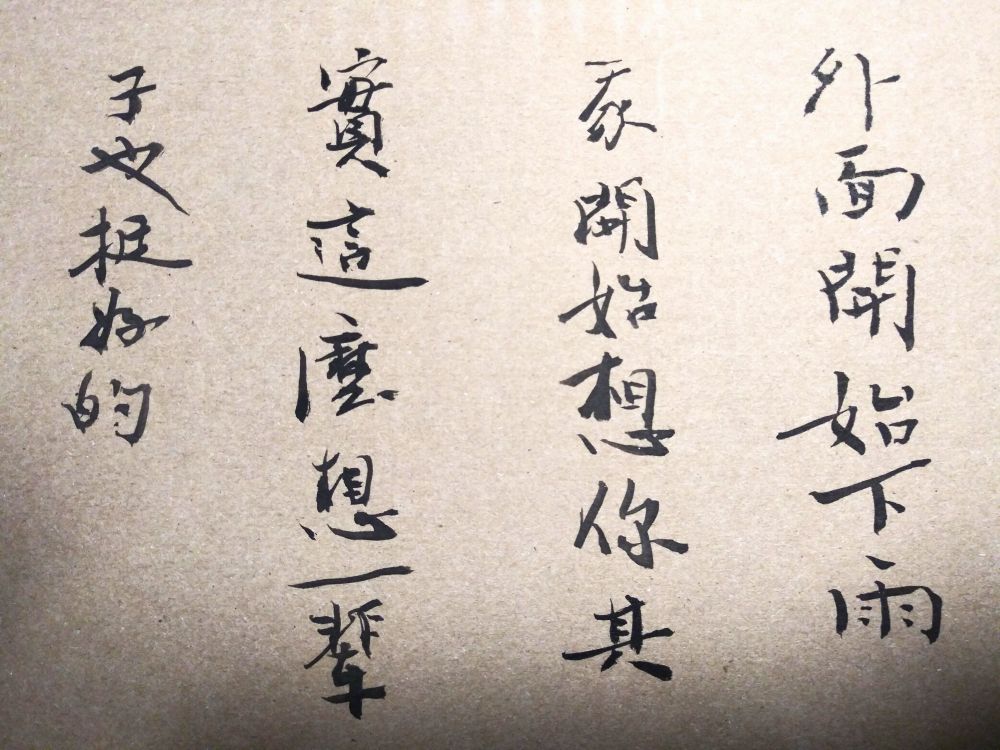 外面開始下雨
我開始想你其
實這麼想一輩
子也挺好的